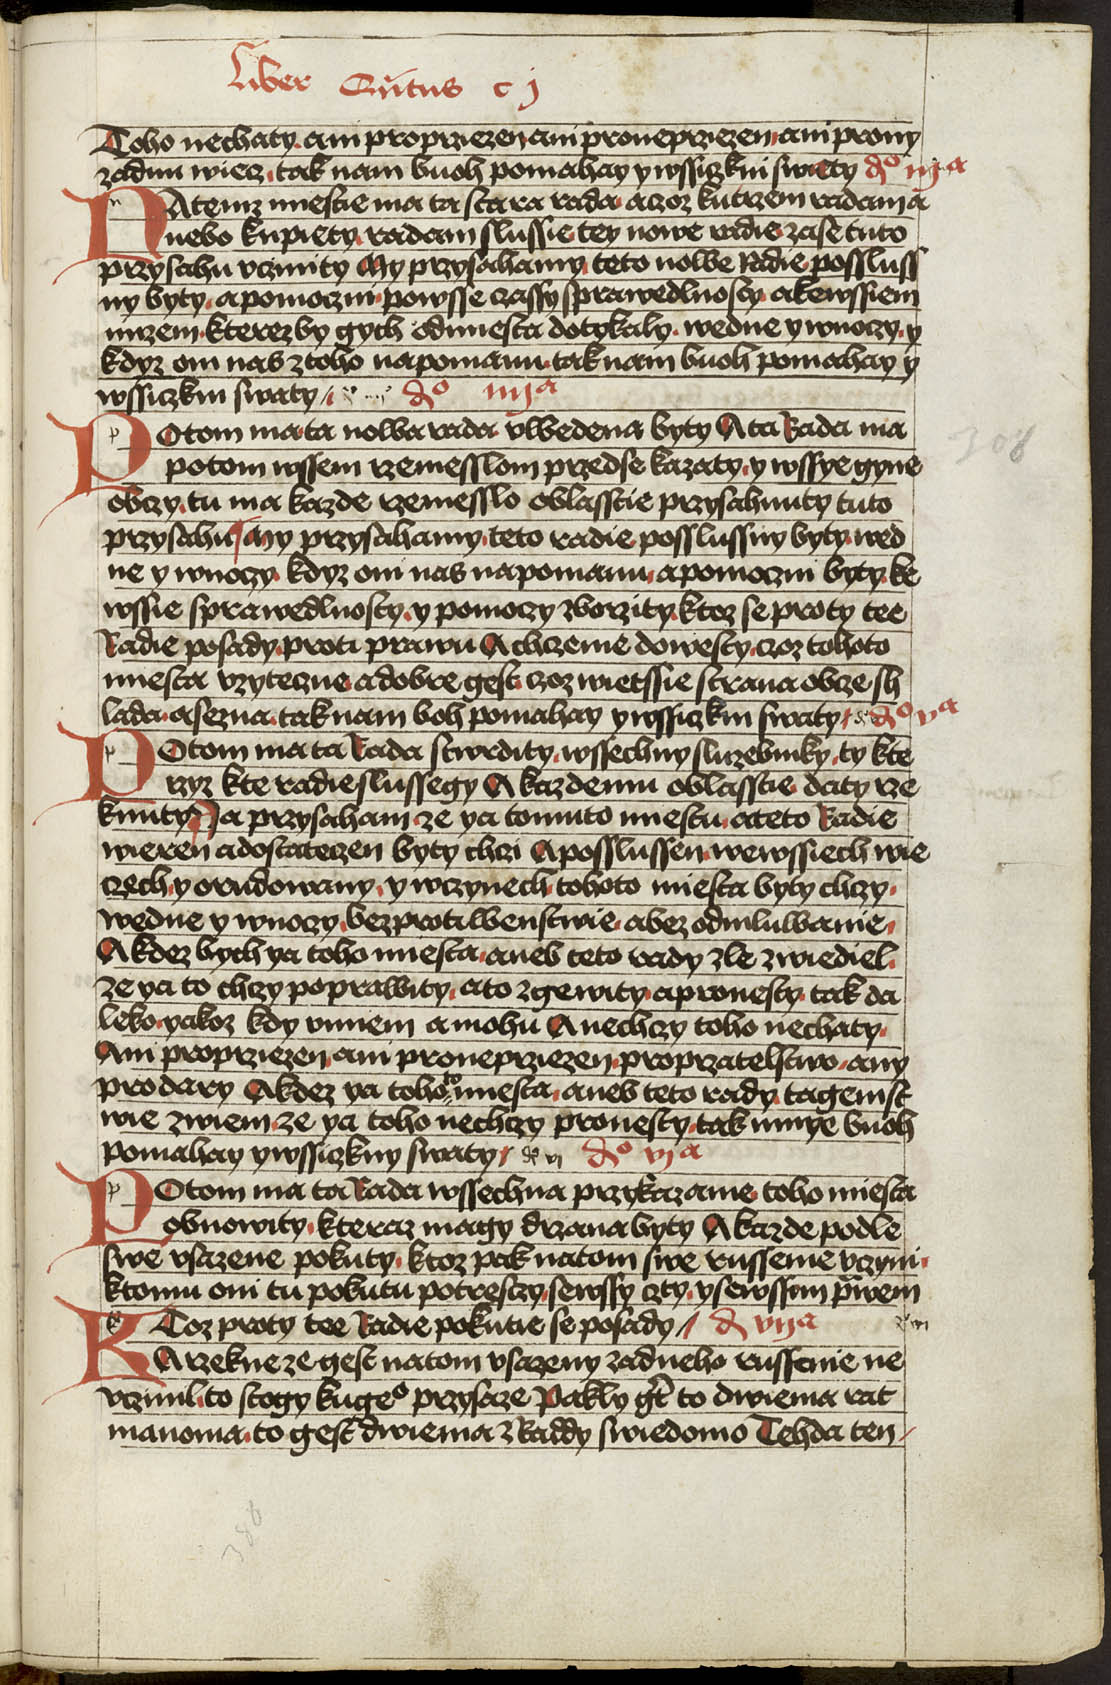 Liber Quitus c j
Toho nechaty. ani proprziezen, ani proneprziezen, ani prony
zadnu wiecz, tak nam buoh pomahay y wssiczkni swiety do iij a
NAtemz miestie ma ta stara rada, a czoz kutczem radam a
nebo knpiety, radam slussie, tey nowe radie, zase tuto
przysahu vcziniti My przysahamy, teto nowe Radie, posslussˀ
ny byty, a pomoczni, powsse czassy sprawedlnosty, akewssiem
miezem, kterez by gych od miesta dotykaly, wedne y wnoczy, y
kdyz oni nas z toho napomanu, tak nam buoh pomahay y
wssiczkni swaty do iiij a
POtom ma ta nowa rada vwedena byty A ta Rada ma
potom wssem rzemesslom przedse kazaty, y wssye gyne
obczy, tu ma kazde rzemesslo oblasstie przysahnuty tuto
przysahu My przysahamy, teto radie, posslussny byty, wed
ne y wnoczy, kdyz oni nas napomanu, a pomoczni byty, ke
wssie sprawedlnosty, y pomoczy zborzity, ktoz se proty tee
Radie posady, proti prawu A chczeme dowesty, czoz tohoto
miesta vzyteczne, a dobre gest, czoz wietssie strana obcze sh
lada, a sezna, tak nam boh pomahay y wssiczkni swaty, do v a
POtom ma ta Rada stwrdity, wssechny sluzebniky, ty kte
rzyz kte radie slussegy A kazdemu oblasstie, daty rze
knuty Ja przysaham, ze ya tomuto miestu, a teto Radie
wieren a dostateczen byty chci A posslussen, wewssiech wie
czech, y orudowany, y wczynech, tohoto miesta byty chczy,
wedne y wnoczy, bezprotiwenstwie, a bez odmluwanie,
A kdez bych ya toho miesta, aneb teto rady zle zwiediel,
ze ya to chczy poprawity, a to zgewity, a pronesty, tak da
leko, yakoz kdy vmiem a mohu A nechczy toho nechaty,
Ani proprziezen, ani proneprziezen, proprzatelstwo, any
pro dary A kdez ya tohoto miesta, aneb teto rady, tagemst
wie zwiem, ze ya toho nechczy pronesty, tak mnye buoh
pomahay y wssiczkny swaty, do vj a
POtom ma ta Rada wssechna przykazanie, toho miesta
obnowity, kteraz magy drzana byty A kazde podle
swe vsazene pokuty, ktoz pak natom swe russenie vczyni,
ktomu oni tu pokutu potresczy, sewssy czty, y sewssim prawem
KToz proty tee Radie pokutie se posady, do vij a
A rzekne ze gest natom vsazeny zadneho russenie ne
vczinil, to stogy kugeo przysaze Pakly gt to dwiema rat
manoma, to gest dwiema z Raddy swiedomo Tehda ten
308
388